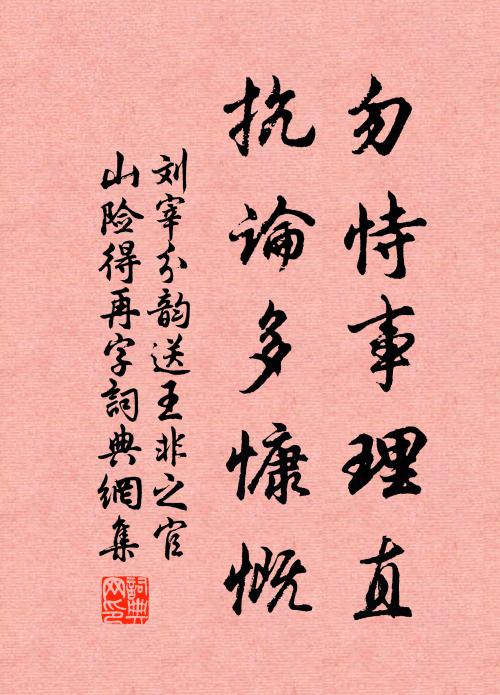 勿恃事理直
抗论多慷慨
刘宰分韵送王非之官
山险得再字词典网集
词典网印